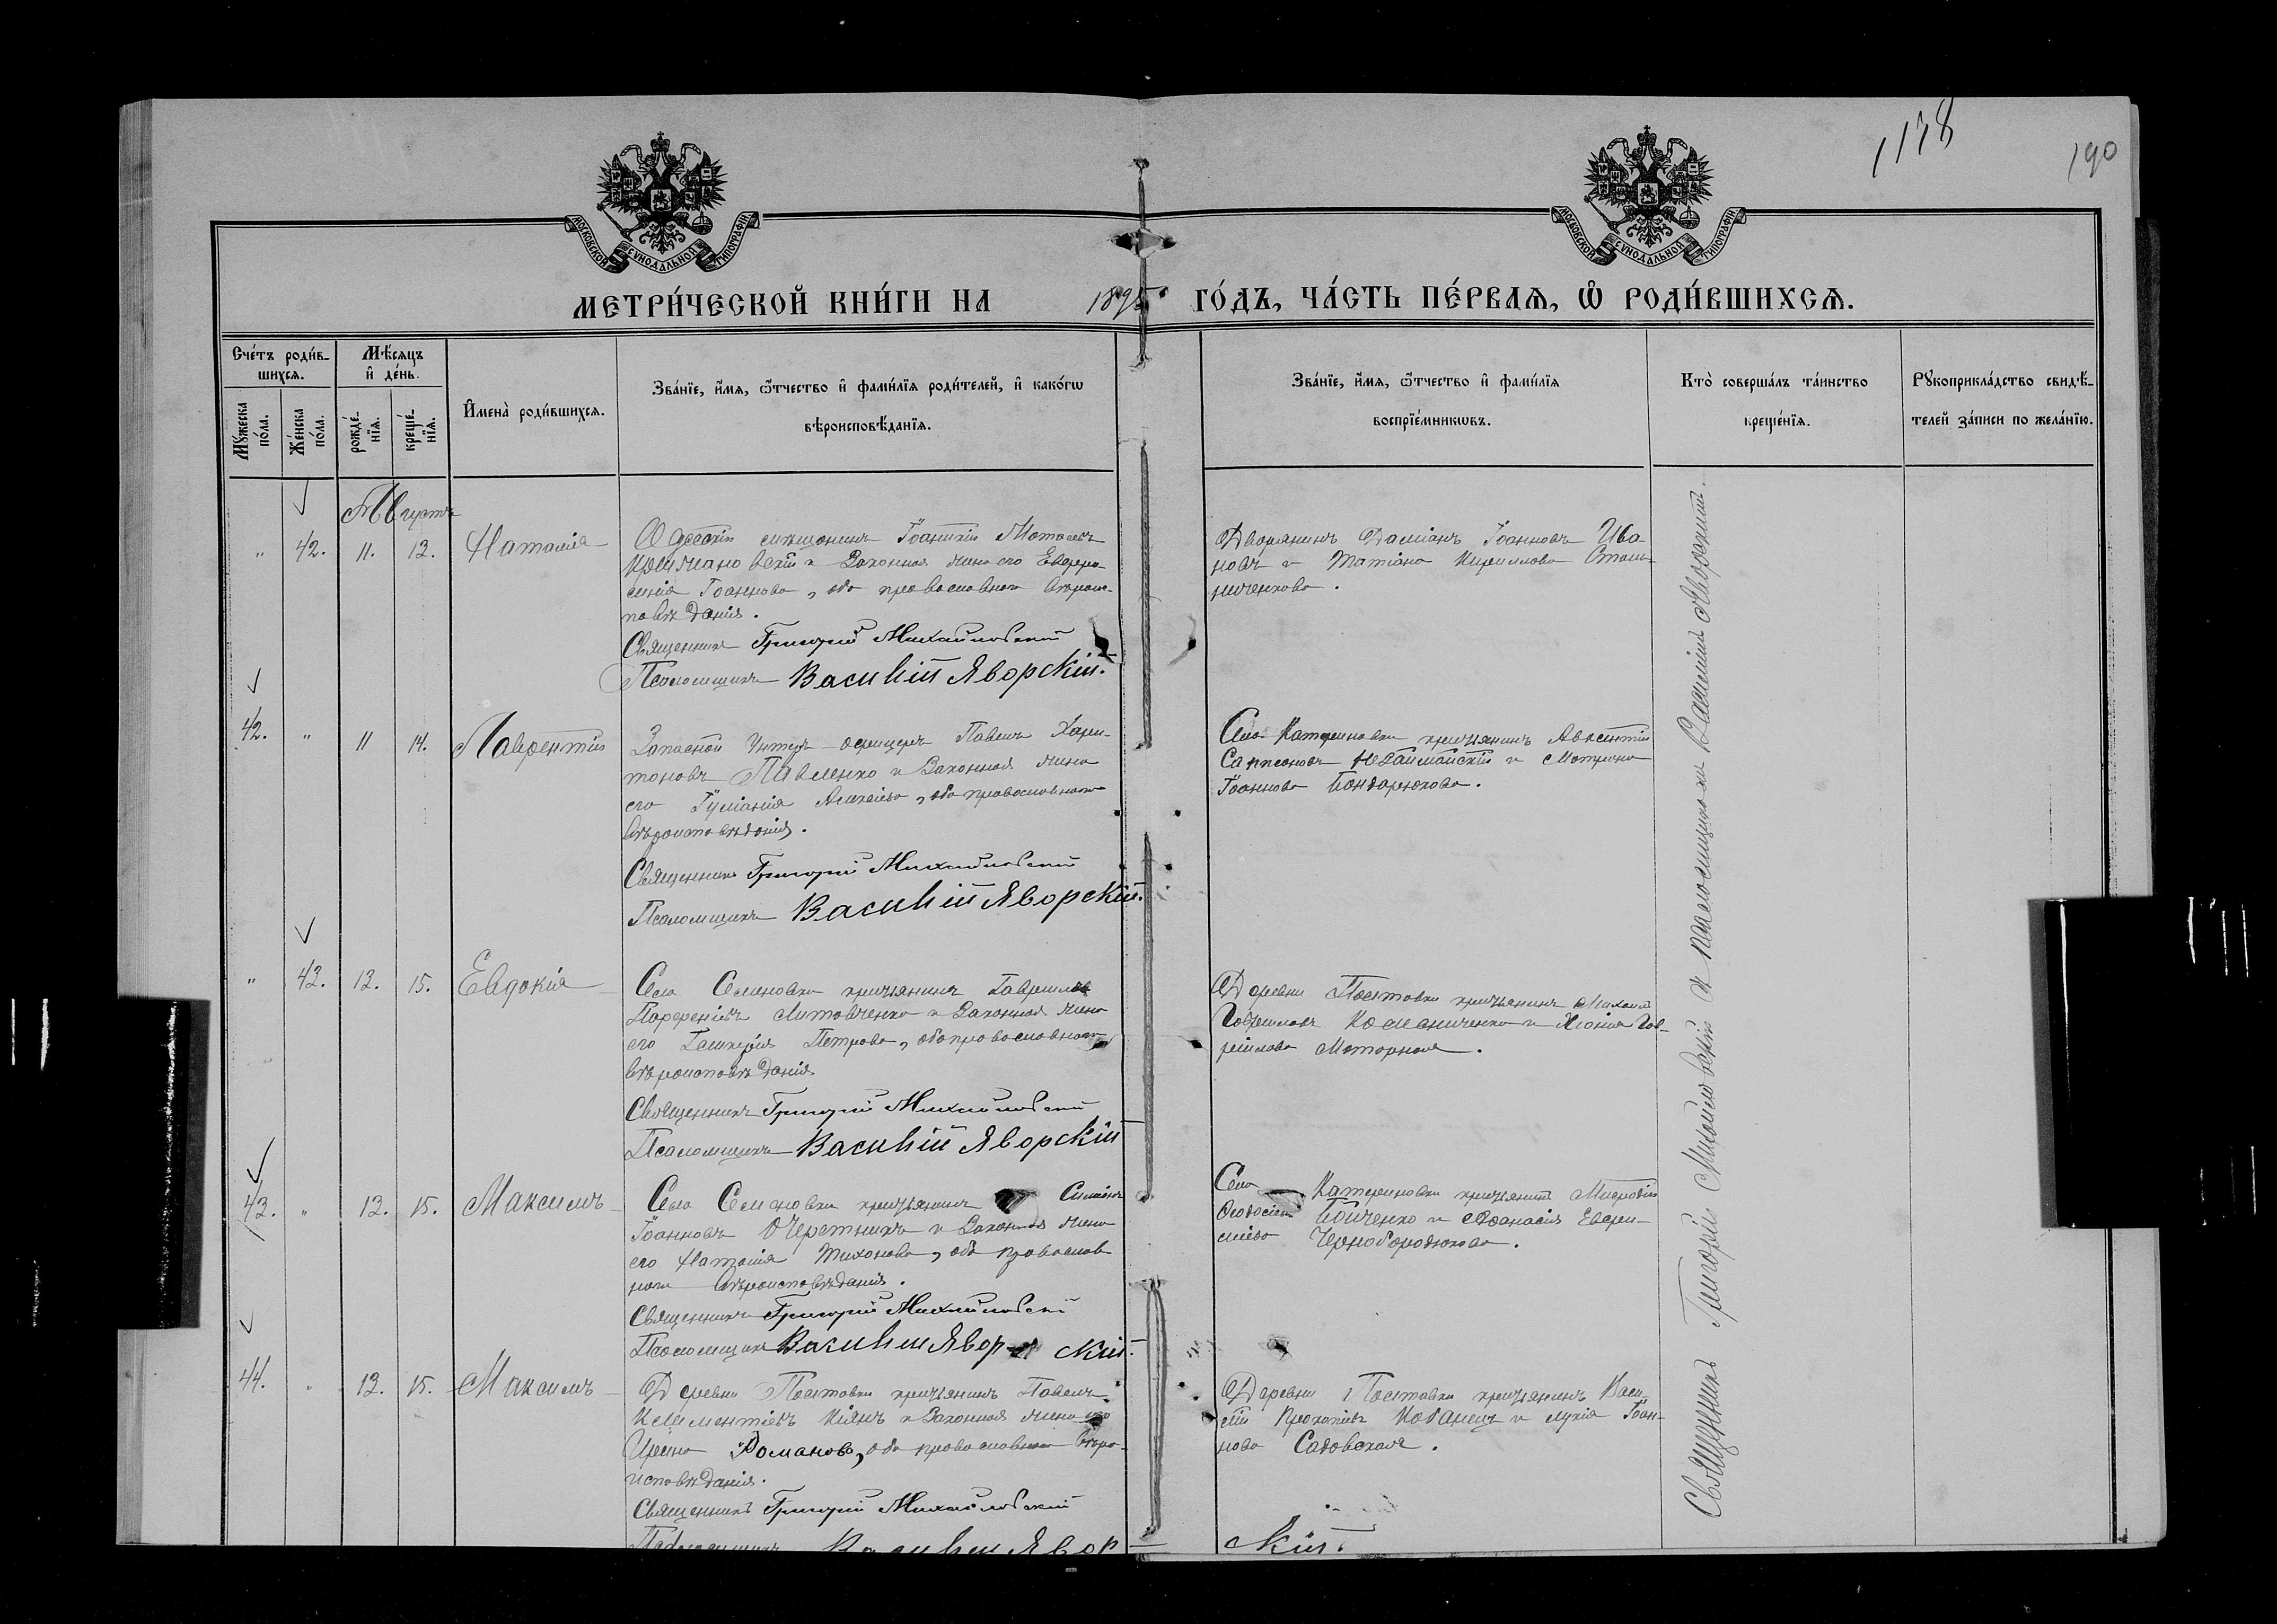 1138
190
МОСКОВСКОЙ СѴНОДАЛЬНОЙ ТИПОГРАФІИ
МОСКОВСКОЙ СѴНОДАЛЬНОЙ ТИПОГРАФІИ
МЕТРИ́ЧЕСКОЙ КНИ́ГИ НА 1895 ГО́ДЪ, ЧА́СТЬ ПЕ́РВАѦ, Ѡ҆ РОДИ́ВШИХСѦ.
Сче́тъ роди́в-
шихсѧ.
Мѣ́сѧцъ
и҆ де́нь.
Мꙋ́жеска
по́ла.
Же́нска
по́ла.
рожде́-
нїѧ.
креще́-
нїѧ.
И҆мена̀ роди́вшихсѧ.
Зва́нїе, и҆́мѧ, ѻ҆́тчество и҆ фами́лїѧ роди́телей, и҆ како́гѡ
вѣроисповѣ́данїѧ.
Зва́нїе, и҆́мѧ, ѻ҆́тчество и҆ фами́лїѧ
воспрїе́мникѡвъ.
Кто̀ соверша́лъ та́инство
креще́нїѧ.
Рꙋкоприкла́дство свидѣ́-
телей за́писи по жела́нїю.
Августъ
" 42. 11. 13. Наталія
Одесскій мѣщанинъ Іоанникій
и законная жена его Евфро-
синія Іоаннова, оба православнаго вѣроис-
повѣданія.
Священникъ Григорій Михайловскій
Псаломщикъ Василій Яворскій.
Дворянинъ Даміанъ Іоанновъ Ива-
новъ и Татіана Кириллова
42. " 11 14. Лаврентій
Запасной Унтеръ-офицеръ Павелъ Хари-
тоновъ Павленко и законная жена
его Іуліанія Алексіева, оба православнаго
вѣроисповѣданія.
Священникъ Григорій Михайловскій
Псаломщикъ Василій Яворскій.
Села Катериновки крестьянинъ Авксентій
и Матрона
Іоаннова Бондарюкова.
" 43. 13. 15. Евдокія
Села Семеновки крестьянинъ Гавріилъ
Парфеніевъ Литовченко и законная жена
его Гликерія Петрова, оба православнаго
вѣроисповѣданія
Священникъ Григорій Михайловскій
Псаломщикъ Василій Яворскій
Деревни Поститовки крестьянинъ Михаилъ
Гавріиловъ и Ксенія Гав-
ріилова Моторная.
43. " 13. 15. Максимъ
Села Семеновки крестьянинъ Симеонъ
Іоанновъ Очеретникъ и законная жена
его Наталія Тихонова, оба православ
наго вѣроисповѣданія.
Священникъ Григорій Михайловскій
Псаломщикъ Василій Яворскій.
Села Катериновки крестьянинъ Мефодій
Ѳеодосіевъ Бойченко и Аѳанасія Евфи-
міева Чернобородюкова.
44. " 13. 15. Максимъ
Деревни Поститовки крестьянинъ Павелъ
Климентіевъ Кіянъ и законная жена его
Ирина Романова, оба православнаго вѣро-
исповѣданія.
Священникъ Григорій Михайловскій
Псаломщикъ Василій Яворскій.
Деревни Поститовки крестьянинъ Васи-
лій Прокопіевъ Кобанецъ и Лукія Іоан-
нова Садовская.
Священникъ Григорій Михайловскій и псаломщикъ Василій Яворскій.